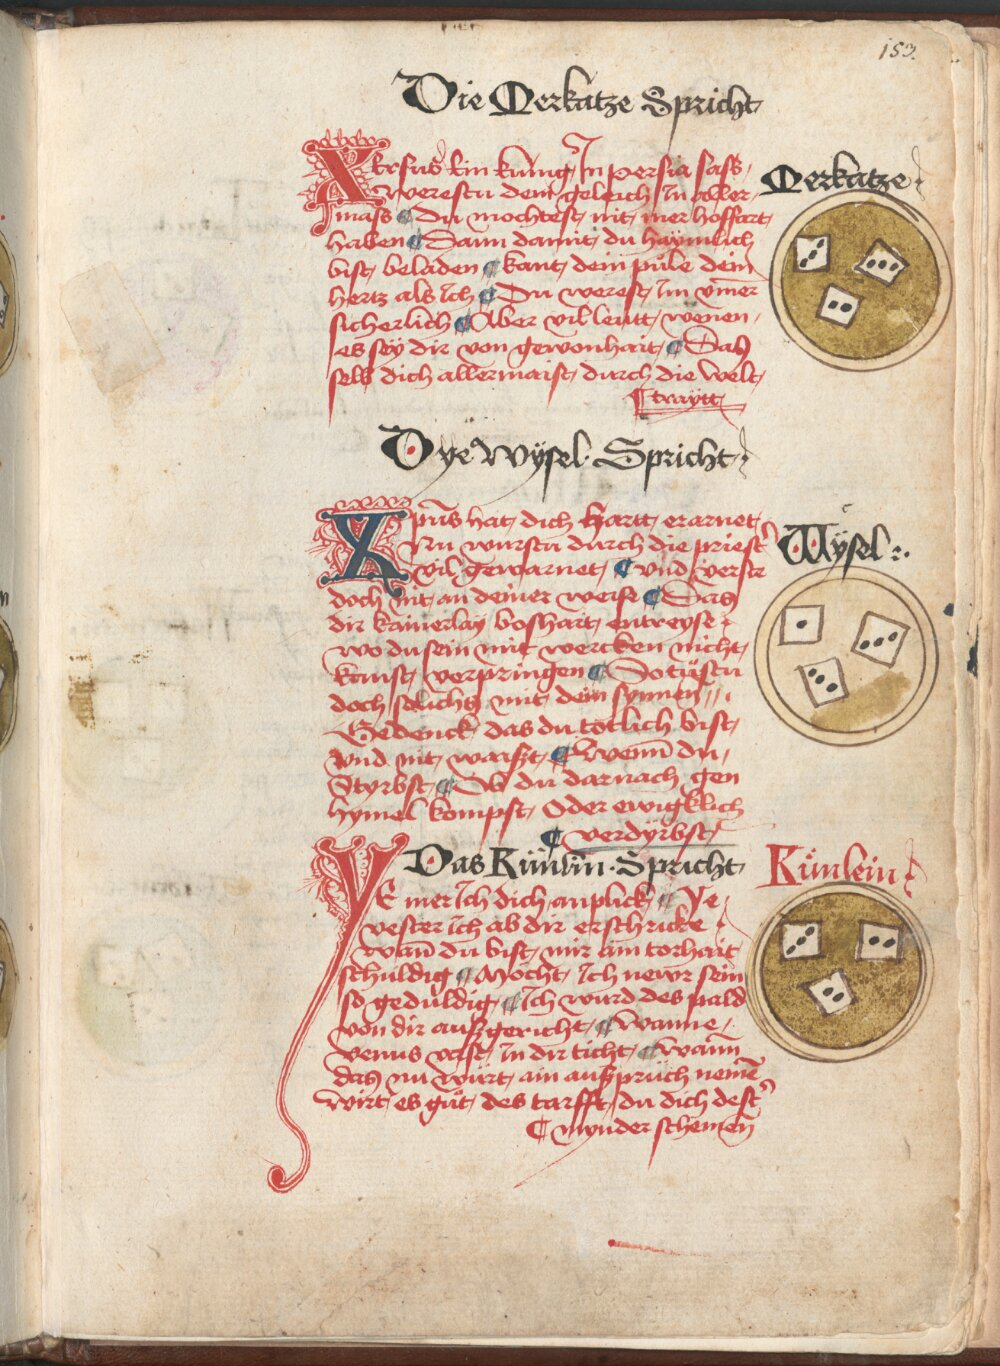 153.
Die Merkatze Spricht
Merkatze
Xersus ein kunig In persia sass
Werestu dem geleich In aller
mass ¶ Du mochtest nit mer hoffart
haben ¶ Dann damit du haymlich
bist beladen ¶ kant dein pule dein
hertz als Ich ¶ Du werest Im vnmer
sicherlich ¶ Aber vil leutt wenen
es sey dir von gewonhait ¶ Das
selb dich allermaist durch die welt
¶ traÿtt
Dye Wÿsel Spricht
Wÿsel
Xpus hat dich Hartt erarnet
Nu wurstu durch die priest
vil gewarnet ¶ vnd verste
doch nit an deiner weise ¶ Das
dir kainerlay boshait entreyse
wo du sein mit wercken nicht
kanst verpringen ¶ So tustu
doch solichs mit dein synnen
Gedenck das du totlich bist
Vnd nit waist ¶ Wenn du
Styrbst ¶ Ob du darnach gen
hymel kompst Oder ewigklich
¶ verdÿrbst
Das Künlin Spricht
Künlein
YE mer Ich dich anplick ¶ Ye
vester Ich ab dir erschricke
wann du bist mir ain torhait
schuldig ¶ Mocht Ich newr sein
so geduldig ¶ Ich wurd des pald
von dir aussgericht ¶ Wanne
venus vast In dir ticht ¶ wann
das nu würt ain ausspruch nemen
wirt es gut des tarfft du dich dest
¶ mynder schemen